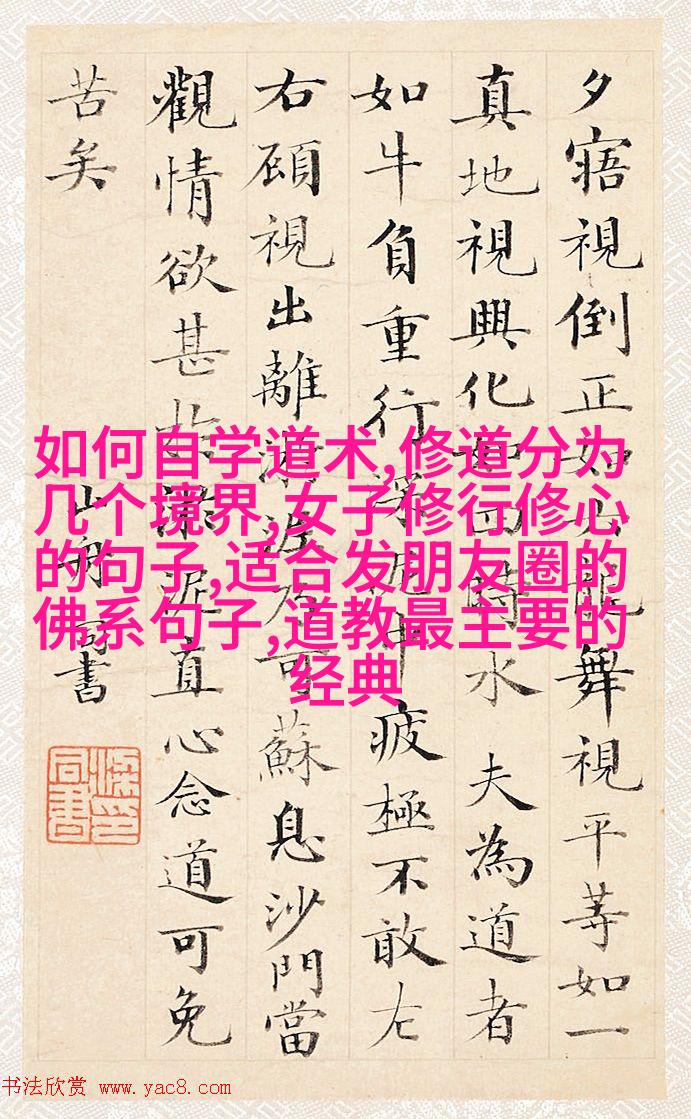 夕寤視倒正如六龍舞視平等如一
真地視興化如四時水 夫為道者
如牛負重行深泥中疲極不敢左
右顧視出離淤泥乃可蘇息沙門當
觀情欲甚於淤泥直心念道可免
苦矣
山舟同書
如何自学道术,修道分为
几个境界,女子修行修心
的句子,适合发朋友圈的
佛系句子,道教最主要的
经典
书法欣赏 www.yac8.com